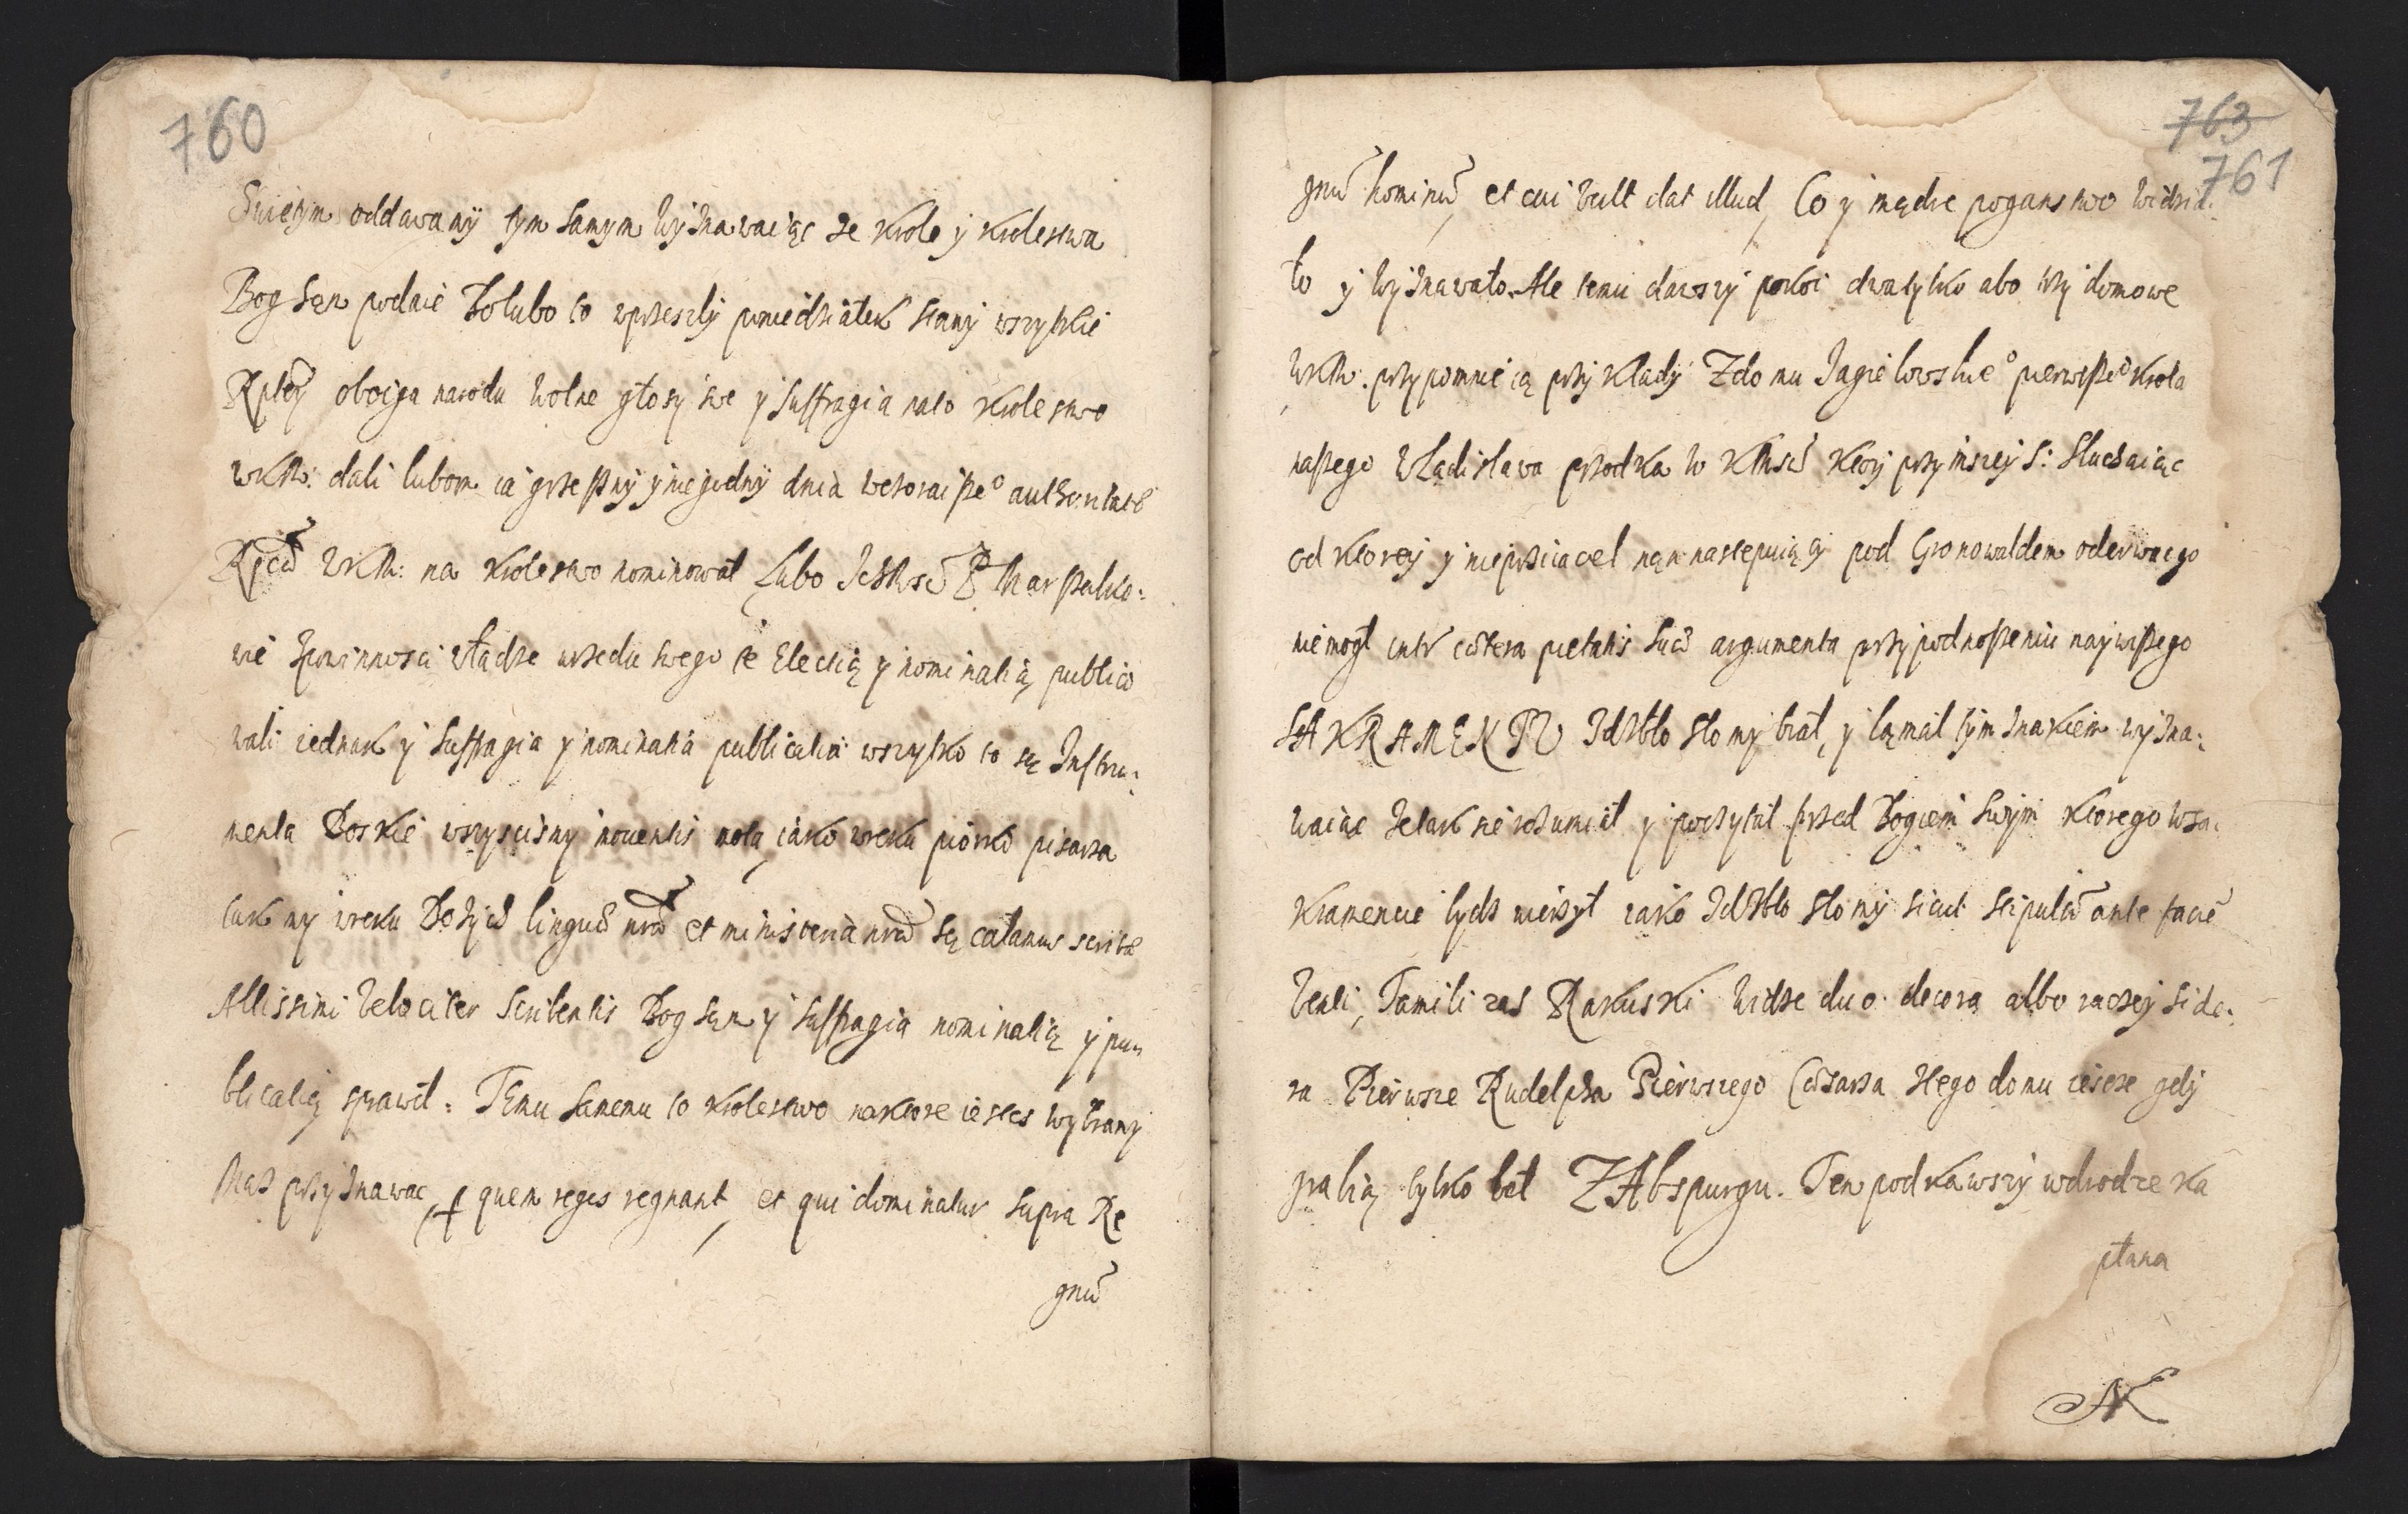 760
Swiętym oddawany tym samym wyznawaiąc ze Krole y Krolestwa
Bog sam podaie Bo lubo to wprzeszly poniedziałek stany wszystkie
Rptey oboiga narodu wolne głosy swe y suffragia na to Krolestwo
WKM: dali lubom ia grzeszny y niegodny dnia wczoraisze° authoritate
WKM: na Krolestwo nominował Lubo Marszałko:
wie z powinnosci władze urzedu swego te Elecią y nominatią publico
wali iednak y suffragia y nominatia publicatia wszystko to są Instru:
menta Boskie wszyscismy moventis nota, iako wreku piorko pisarza
tak my wreku Bozych linguæ nræ et ministeria nra są calamus scribæ
Altissimi velociter scribentis Bog sam y suffragia nominatią y pu:
blicatią sprawił: Temu samemu to Krolestwo na ktore iestes wybrany
Masz przyznawac, p quem reges regnant, et qui dominatur supra Re
gnũ
763
761
gnũ hominũ, et cui vult dat illud, Co y mądre poganstwo widzia:
ło y wyznawało. Ale temu dawszy pokoi dwa tylko abo trzy domowe
WKM: przypomnie ią przyklady Zdomu Jagielowskie° pierwsze° Krola
naszego Wladislawa przodka W KMsci ktory przy mszey S: Sluchaiąc
od ktorey y nieprziaciel nam nastepuiący pod Gronowaldem oderwac go
niemogł intr cætera pietatis suæ argumenta przy podnoszeniu naywiszego
SAKRAMENTU Idzbło słomy brał, y łamał tym znakiem wyzna:
waiąc ze tak nie rozumiał y poczytał przed Bogiem swym ktorego wsa:
kramencie tych wierzył iako Idzbło słomy sicut stipulã ante faciẽ
venti, Famili zas Rakuski widze duo decora albo raczey side:
ra Pierwsze Rudolpha Pierwszego Cæsarza stego domu iescze gdy
grabią tylko beł Z Abspurgu. Ten podkawszy wdrodze ka
płana
AK